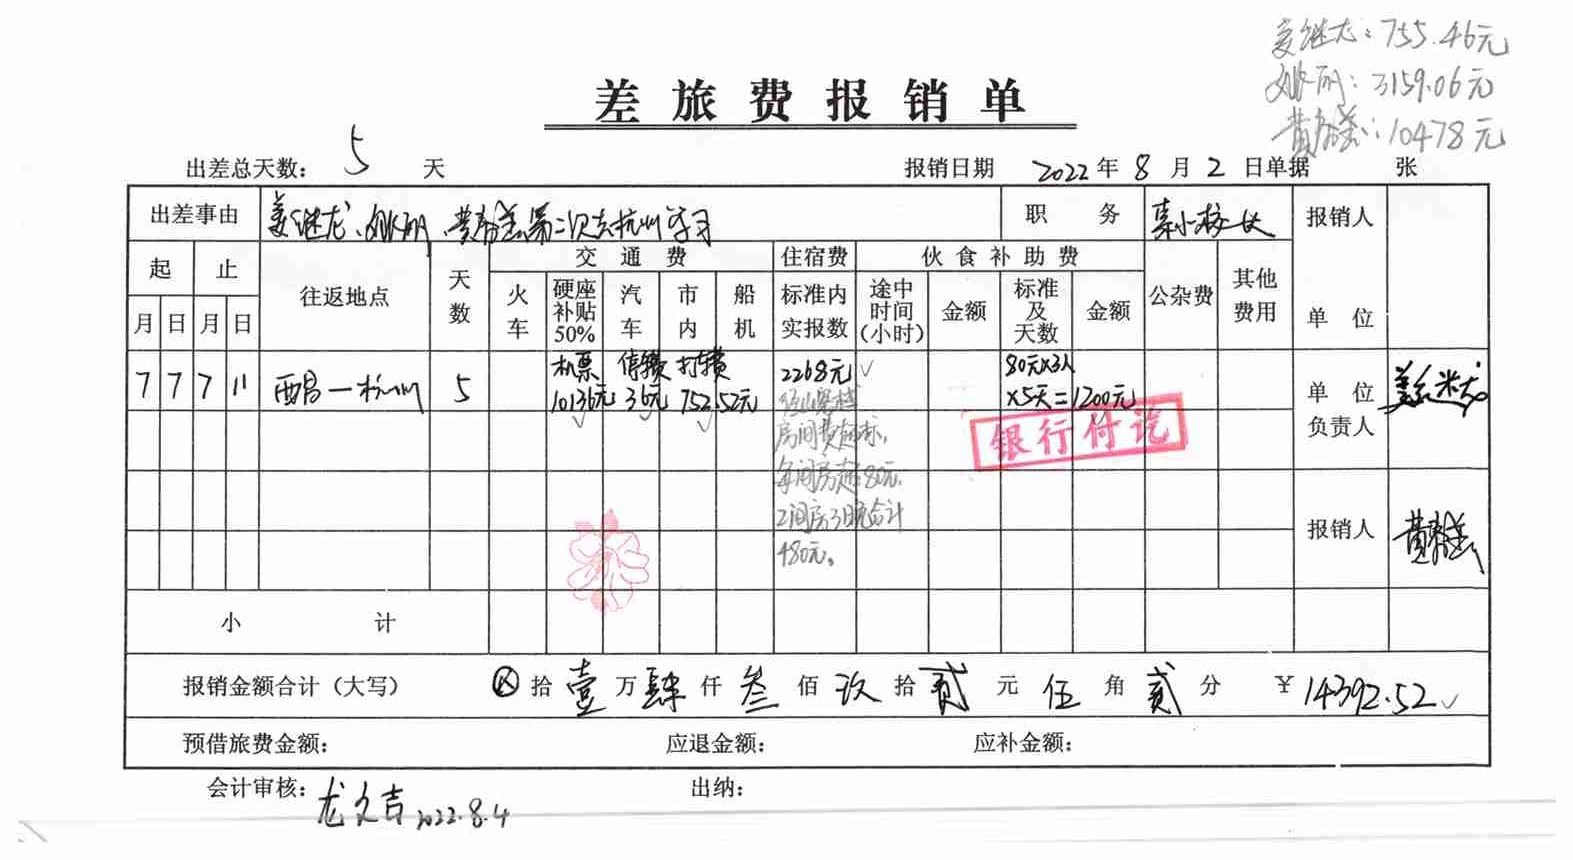 姜继龙：755.46元
姚丽：3159.06元
：10478元
差旅费报销单
出差总天数： 5 天 报销日期 2022年8月2日单据 张
出差事由 姜继龙、姚丽、 第二次去杭州学习 职务 小校长 报销人
起 止 往返地点 天数 交通费 住宿费 伙食补助费 公杂费 其他费用 单位
月 日 月 日 火车 硬座补贴50% 汽车 市内 船机 标准内实报数 途中时间(小时) 金额 标准及天数 金额
7 7 7 11 西昌—杭州 5 机票10136元 停车费36元 打车费752.52元 2268元 80元×3人×5天=1200元 单位负责人
房间费超标，
每间房超80元，
2间房3晚合计
480元。
银行付讫
报销人
小计
报销金额合计（大写） ⊗拾壹万肆仟叁佰玖拾贰元伍角贰分 ￥14392.52
预借旅费金额： 应退金额： 应补金额：
会计审核：龙文吉 2022.8.4 出纳：